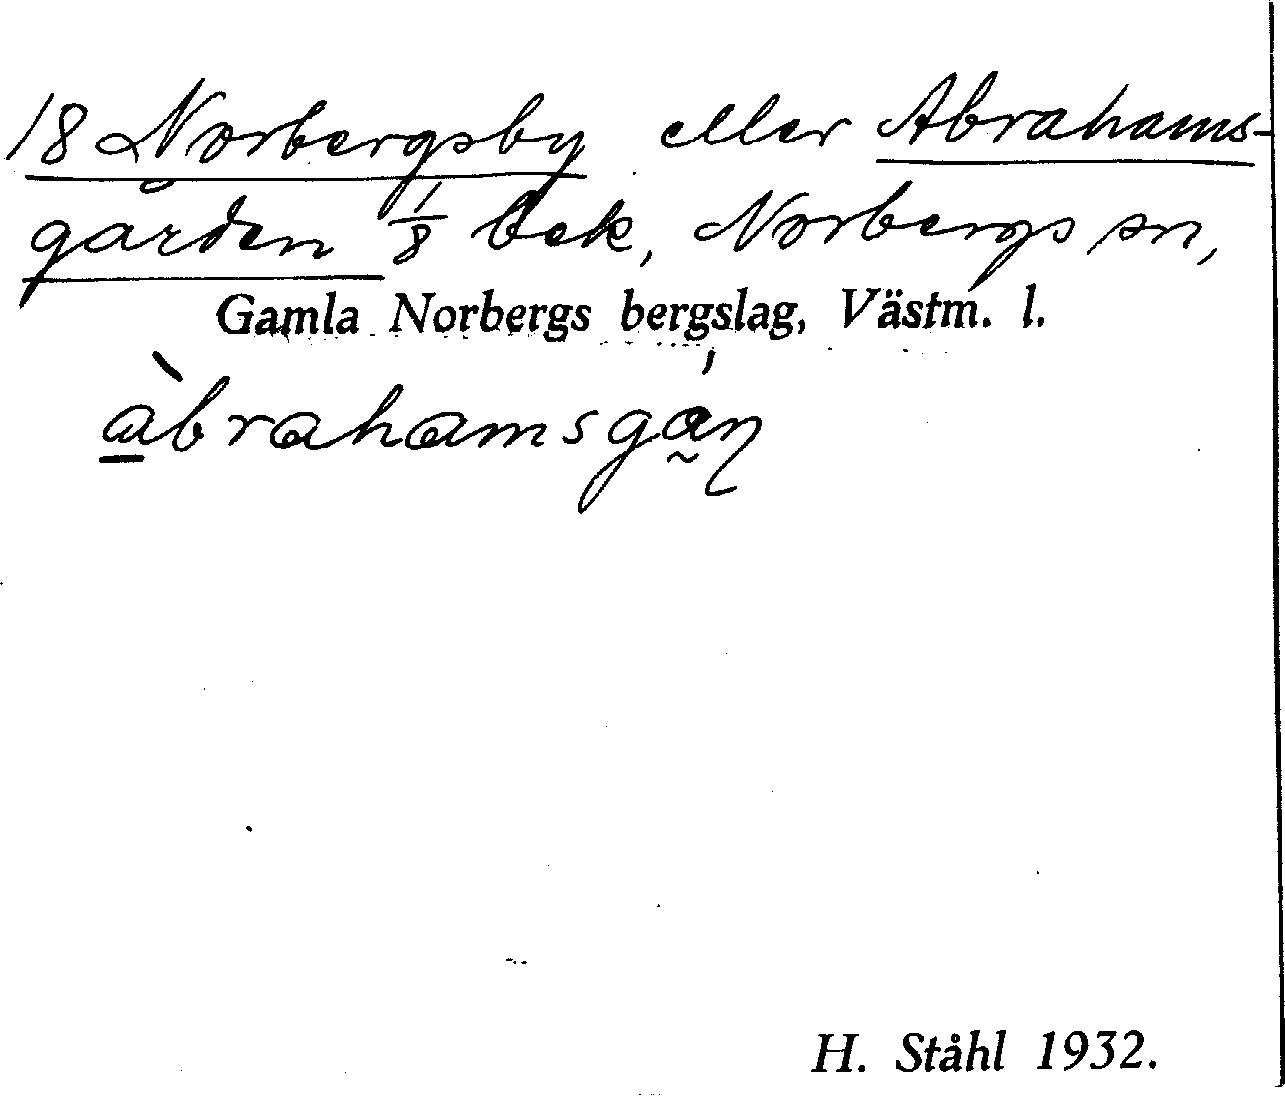 18 Norbergsby eller Abrahams-
gården 1/8 bek, Norbergs sn,
Gamla Norbergs bergslag, Västm. l.
àbrahamsgá̰ɳ
H. Ståhl 1932.